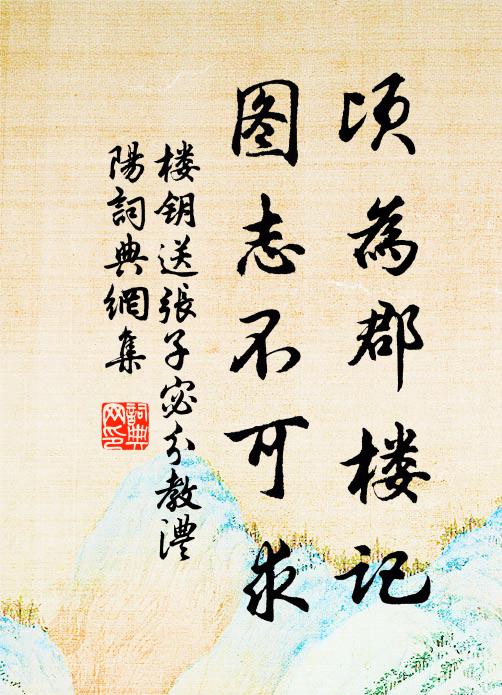 顷为郡楼记
图志不可求
楼钥送張子宓分教澧
陽詞典網集
詞典
网印